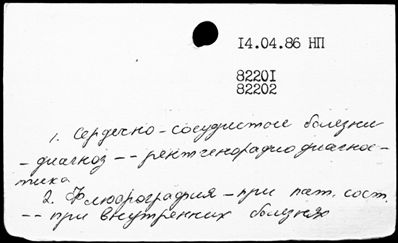 14.04.86 НП
82201
82202
1. Сердечно-сосудистые болезни
- диагноз -- рентгенорадиодиагнос-
тика
2. Флюорография - при пат. сост.
-- при внутренних болезнях